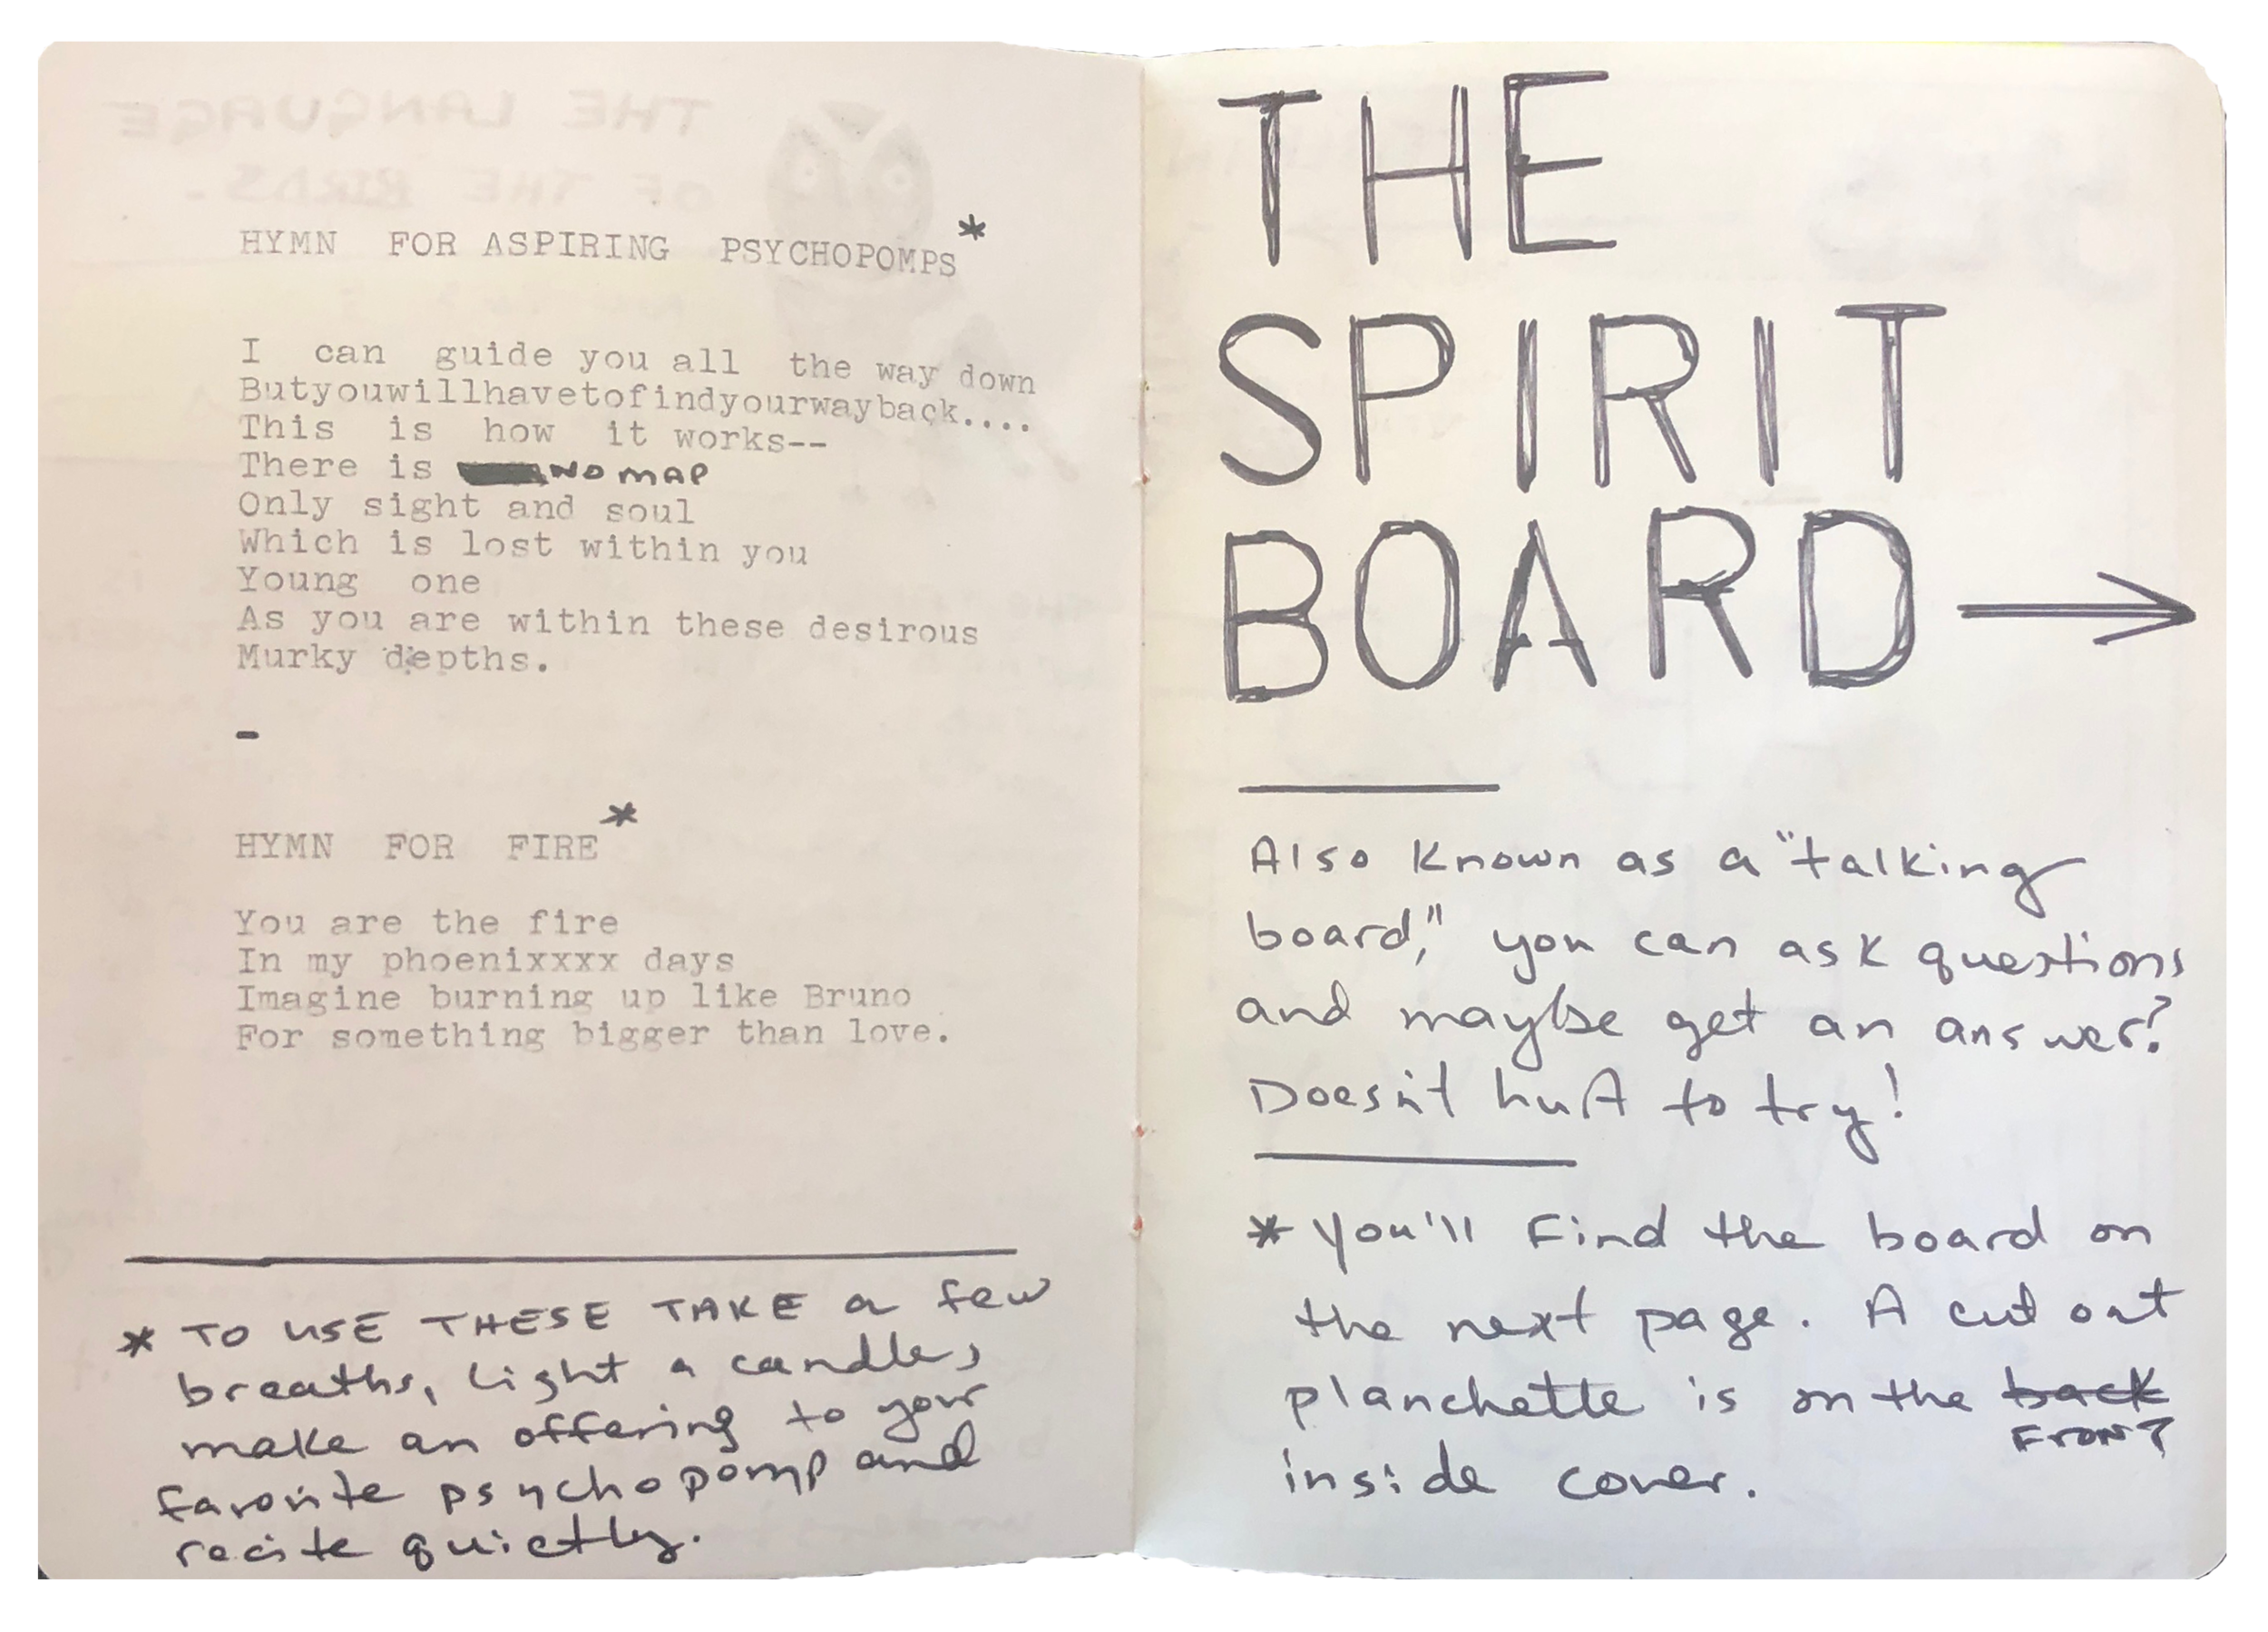 THE LANGUAGE
OF THE BIRDS-
HYMN FOR ASPIRING PSYCHOPOMPS*
I can guide you all the way down
Butyouwillhavetofindyourwayback....
This is how it works--
There is NO MAP
Only sight and soul
Which is lost within you
Young one
As you are within these desirous
Murky depths.
-
HYMN FOR FIRE*
You are the fire
In my phoenixxxx days
Imagine burning up like Bruno
For something bigger than love.
* TO USE THESE TAKE a few
breaths, light a candle,
make an offering to your
favorite psychopomp and
recite quietly.
THE
SPIRIT
BOARD →
Also known as a "talking
board," you can ask questions
and maybe get an answer?
Doesn't hurt to try!
* You'll find the board on
the next page. A cut out
planchette is on the back
FRONT
inside cover.